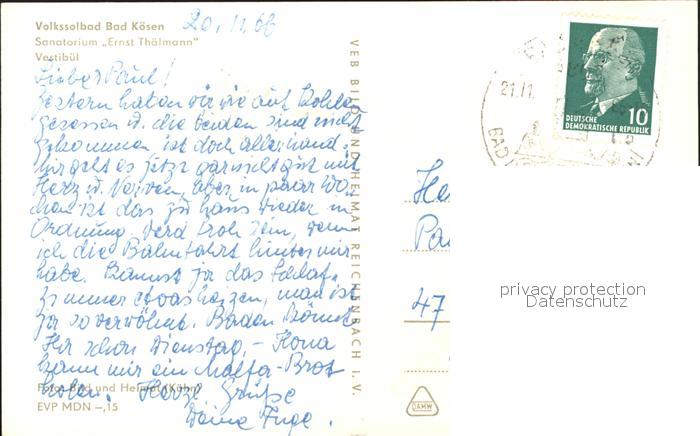 Volkssolbad Bad Kösen
Sanatorium „Ernst Thälmann"
Vestibül
20.11.66
Lieber Paul!
gestern haben wir wie auf Kohlen
gesessen u. die beiden sind nicht
gekommen ist doch allerhand.
Mir geht es jetzt gar nicht gut mit
Herz u. Nerven, aber in paar Wo-
chen ist das zu Haus wieder in
Ordnung. Werd froh sein, wenn
ich die Bahnfahrt hinter mir
habe. Kannst ja das Schlaf-
zimmer etwas heizen, man ist
ja so verwöhnt. Baden könnt
Ihr schon Dienstag, - Ilona
kann mir ein Malfa-Brot
holen. Herzl. Grüße
Deine Inge.
Foto: Bild und Heimat (Kühn)
EVP MDN –,15
VEB BILD UND HEIMAT REICHENBACH I. V.
DAMW
21.11.
BAD
DEUTSCHE
DEMOKRATISCHE REPUBLIK
10
He
Pa
47
privacy protection
Datenschutz